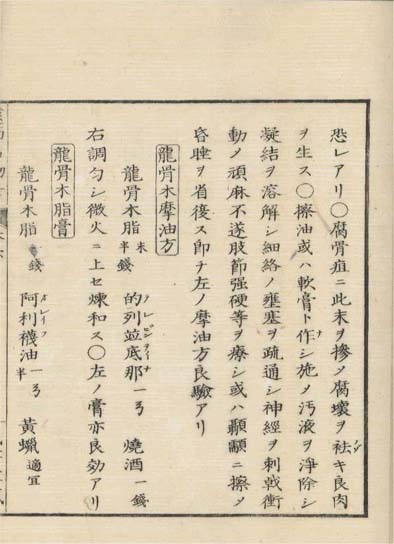 恐レアリ〇腐骨疽ニ此末ヲ摻メ腐壊ヲ祛キ良肉
ヲ生ス〇擦油或ハ軟膏ト作シ施メ汚液ヲ淨除シ
凝結ヲ溶解シ細絡ノ壅塞ヲ疏通シ神經ヲ刺戟衝
動メ頑麻不遂肢節强硬等ヲ療シ或ハ顳顬ニ擦メ
昏睡ヲ省復ス即チ左ノ摩油方良驗アリ
龍骨木摩油方
龍骨木脂 末半錢 的列並底那 一ヲ 燒酒 一錢
右調匀シ微火ニ上セ煉和ス〇左ノ膏亦良効アリ
龍骨木脂膏
龍骨木脂 錢 阿利襪油 一ヲ半 黄蠟 適宜